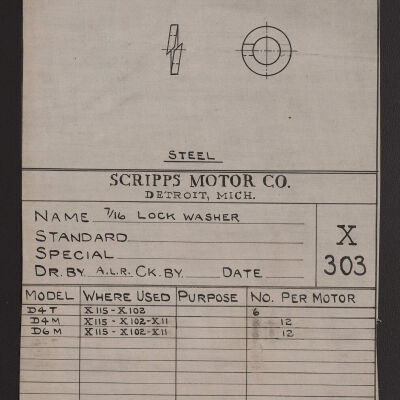 STEEL
SCRIPPS MOTOR CO.
DETROIT, MICH.
NAME 7/16 LOCK WASHER
STANDARD
SPECIAL
DR. BY A.L.R. CK. BY DATE
X
303
MODEL WHERE USED PURPOSE NO. PER MOTOR
D4T X115 - X102 6
D4M X115 - X102 - X11 12
D6M X115 - X102 - X11 12